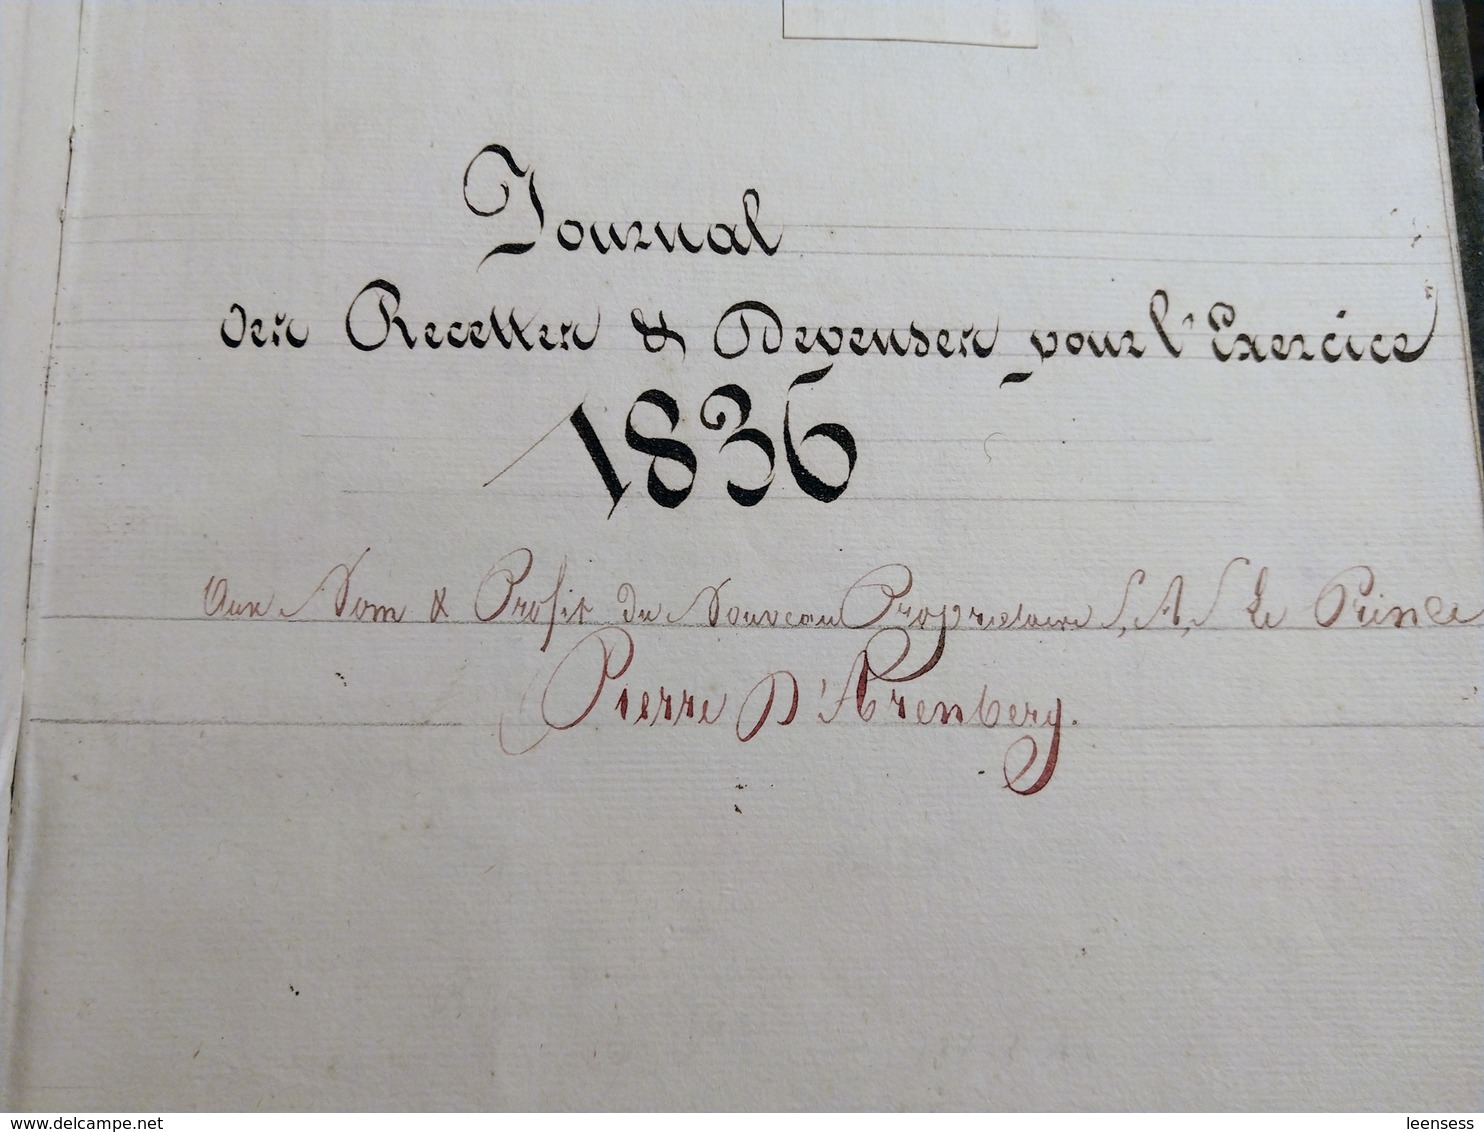 Journal
des Recettes & Depenses pour l'Exercice
1836
Aux Nom & Profit du Nouveau Propriétaire S, A, S Le Prince
Pierre D'Arenberg.
delcampe.net
leensess